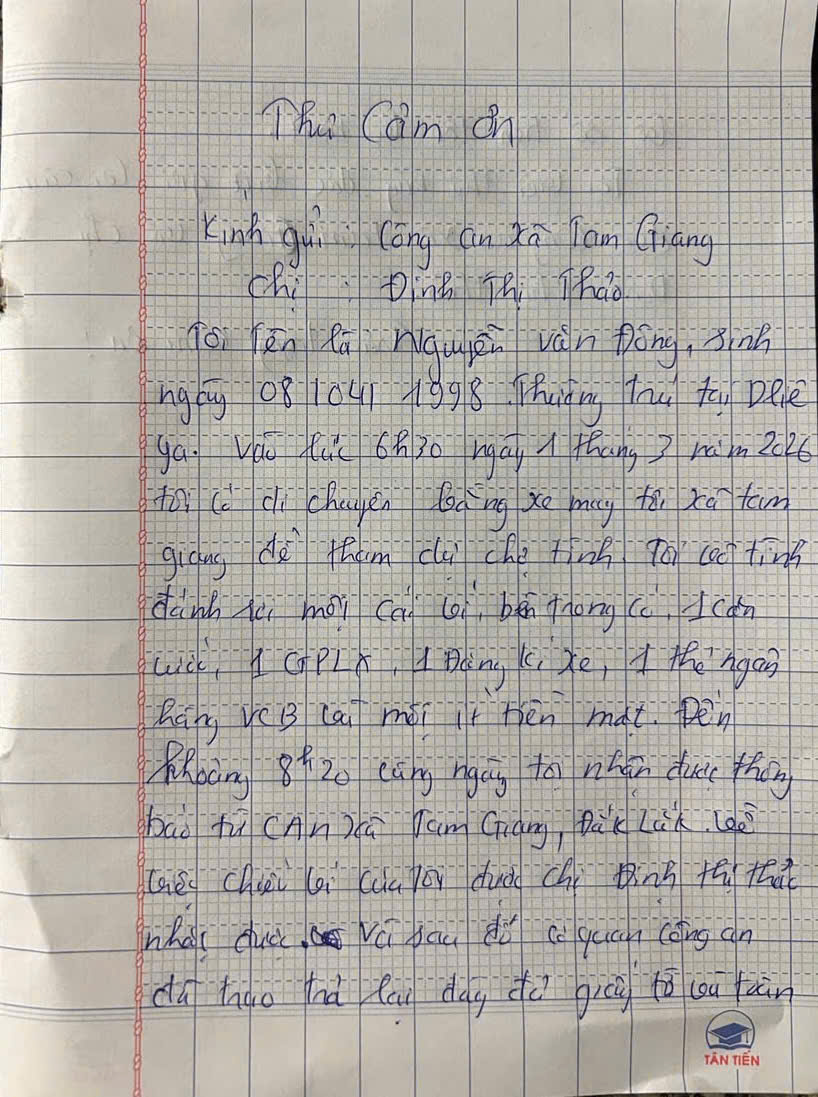 Thư Cảm ơn
Kính gửi : Công an xã Tam Giang
Chị : Đinh Thị Thảo
Tôi Tên là Nguyễn văn Đông, sinh
ngày 08/04/1998. Thường trú tại Dliê
ya. Vào lúc 6h30 ngày 1 tháng 3 năm 2026
tôi có di chuyển bằng xe máy tới xã tam
giang để tham dự chợ tình. Tôi vô tình
đánh rơi một cái ví, bên trong có, 1 căn
cước, 1 GPLX, 1 Đăng kí xe, 1 thẻ ngân
hàng VCB và một ít tiền mặt. Đến
khoảng 8h20 cùng ngày tôi nhận được thông
báo từ CAn xã Tam Giang, Đắk Lắk. Về
việc chiếc ví của Tôi được chị Đinh thị thảo
nhặt được. Và sau đó cơ quan công an
đã trao trả lại đầy đủ giấy tờ và toàn
TÂN TIẾN